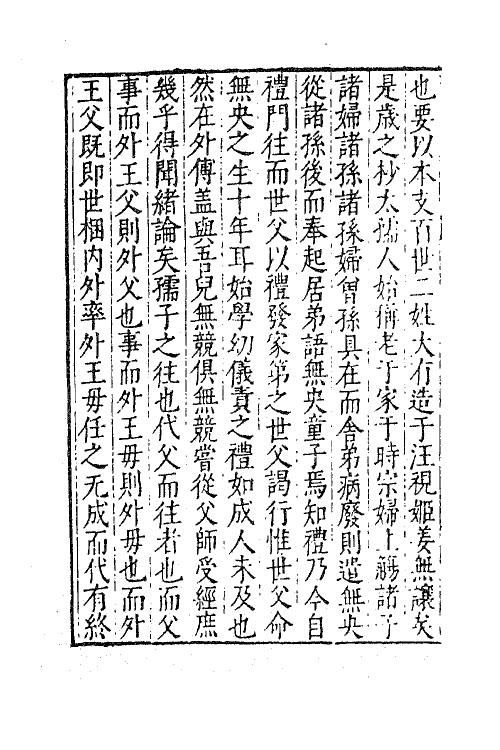 也要以本支百世二姓大有造于汪視姬姜無讓矣
是歲之杪太孺人始稱老于家于時宗婦上觴諸子
諸婦諸孫諸孫婦曾孫具在而舍弟病廢則遣無央
從諸孫後而奉起居弟語無央童子焉知禮乃今自
禮門往而世父以禮發家第之世父謁行惟世父命
無央之生十年耳始學幼儀責之禮如成人未及也
然在外傅蓋與吾兒無競俱無競嘗從父師受經庶
幾乎得聞緒論矣孺子之往也代父而往者也而父
事而外王父則外父也事而外王毋則外毋也而外
王父既即世梱内外率外王毋任之无成而代有終